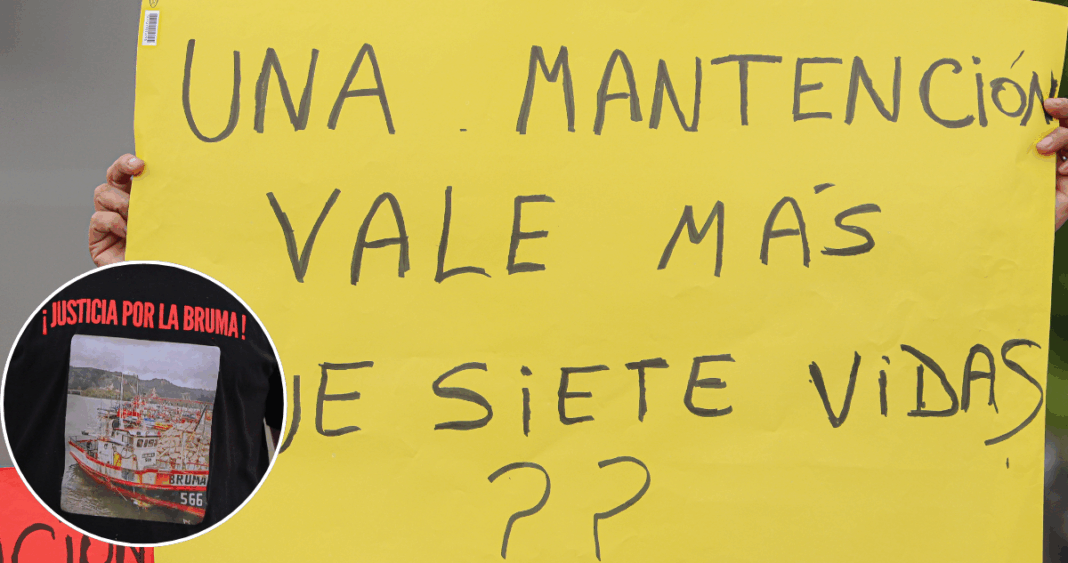 UNA . MANTENCIÓN
VALE MÁS
UE SIETE VIDAS
??
¡JUSTICIA POR LA BRUMA!
BRUMA
566
ACIÓN